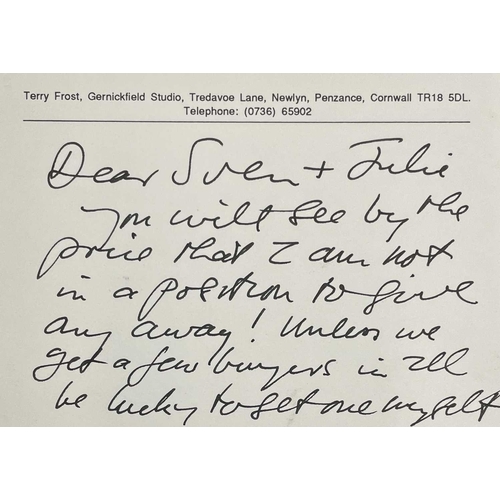 Terry Frost, Gernickfield Studio, Tredavoe Lane, Newlyn, Penzance, Cornwall TR18 5DL.
Telephone: (0736) 65902
Dear Sven + Julie
you will see by the
price that I am not
in a position to give
any away! Unless we
get a few buyers in I'll
be lucky to get one myself